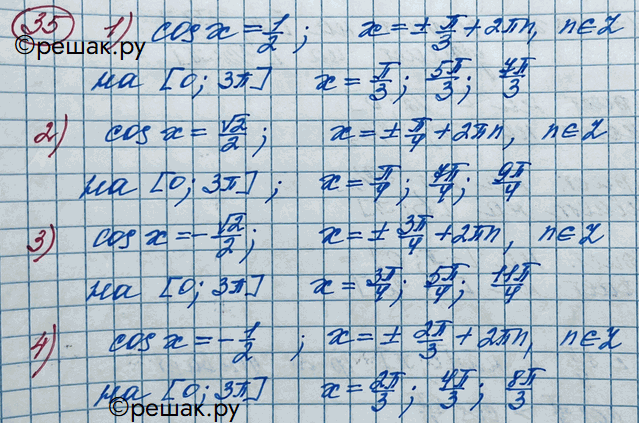 35 1) cos x = 1/2 ; x = ± π/3 + 2πn, n∈Z
©решак.ру
на [0; 3π] x = π/3 ; 5π/3 ; 7π/3
2) cos x = √2/2 ; x = ± π/4 + 2πn, n∈Z
на [0; 3π] ; x = π/4 ; 7π/4 ; 9π/4
3) cos x = -√2/2 ; x = ± 3π/4 + 2πn, n∈Z
на [0; 3π] x = 3π/4 ; 5π/4 ; 11π/4
4) cos x = -1/2 ; x = ± 2π/3 + 2πn, n∈Z
на [0; 3π] x = 2π/3 ; 4π/3 ; 8π/3
©решак.ру